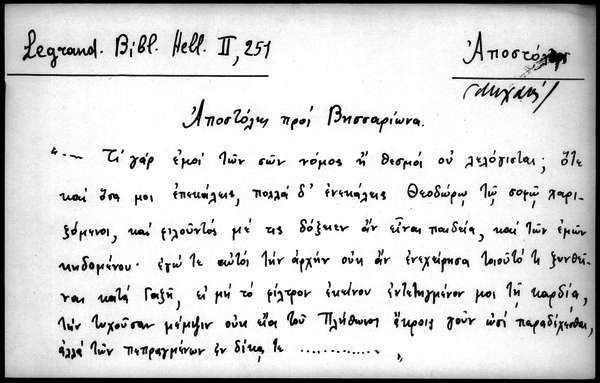 Legrand. Bibl. Hell. II, 251
Ἀποστόλης
(Μιχαήλ)
Ἀποστόλης πρὸς Βησσαρίωνα.
"... Τί γάρ ἐμοί τῶν σῶν νόμος ἤ θεσμοί οὐ λελόγισται; ὅτε
καί ὅσα μοι ἐπεκάλεις, πολλά δ' ἐνεκάλεις Θεοδώρῳ τῷ σοφῷ χαρι-
ζόμενοι, καί φιλοῦντός με τις δόξειεν ἄν εἶναι παιδεία, καί τῶν ἐμῶν
κηδομένου· ἐγώ τε αὐτός τήν ἀρχήν οὐκ ἄν ἐνεχείρησα τοιοῦτό τι ξυνθεῖ-
ναι κατά Γαζῆ, εἰ μή τό φίλτρον ἐκείνου ἐντετηγμένον μοι τῇ καρδίᾳ,
τήν τυχοῦσαν μέμψιν οὐκ εἴα τοῦ Πλήθωνος ἄκροις γοῦν ὠσί παραδέχεσθαι,
ἀλλά τῶν πεπραγμένων ἐν δίκας τε .............. "